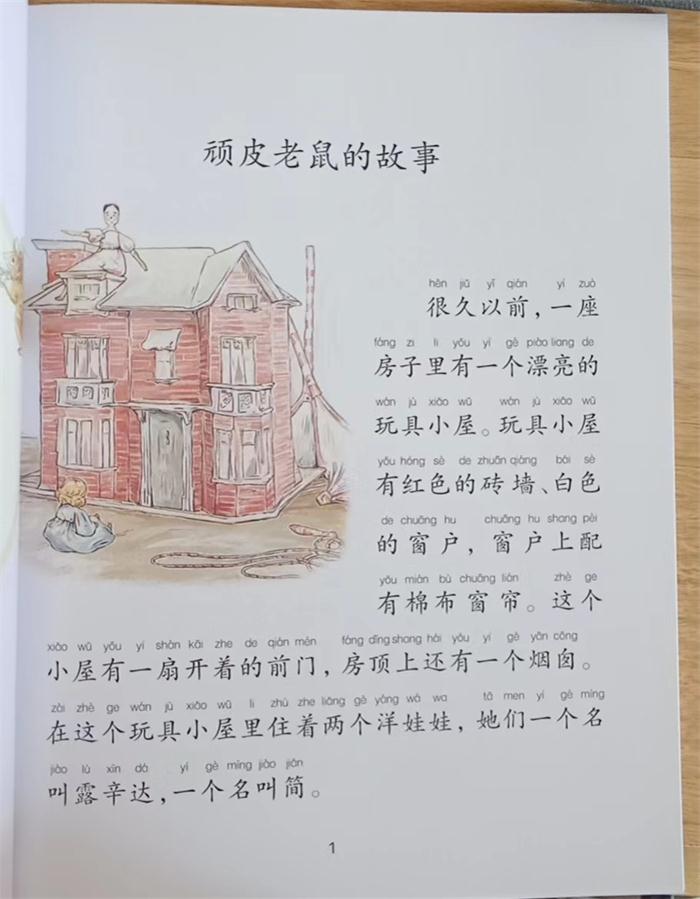 顽皮老鼠的故事
hěn jiǔ yǐ qián yí zuò
很久以前，一座
fáng zi li yǒu yí gè piào liang de
房子里有一个漂亮的
wán jù xiǎo wū wán jù xiǎo wū
玩具小屋。玩具小屋
yǒu hóng sè de zhuān qiáng bái sè
有红色的砖墙、白色
de chuāng hu chuāng hu shang pèi
的窗户，窗户上配
yǒu mián bù chuāng lián zhè ge
有棉布窗帘。这个
xiǎo wū yǒu yí shàn kāi zhe de qián mén fáng dǐng shang hái yǒu yí gè yān cōng
小屋有一扇开着的前门，房顶上还有一个烟囱。
zài zhè ge wán jù xiǎo wū li zhù zhe liǎng gè yáng wá wa tā men yí gè míng
在这个玩具小屋里住着两个洋娃娃，她们一个名
jiào lù xīn dá yí gè míng jiào jiǎn
叫露辛达，一个名叫简。
1